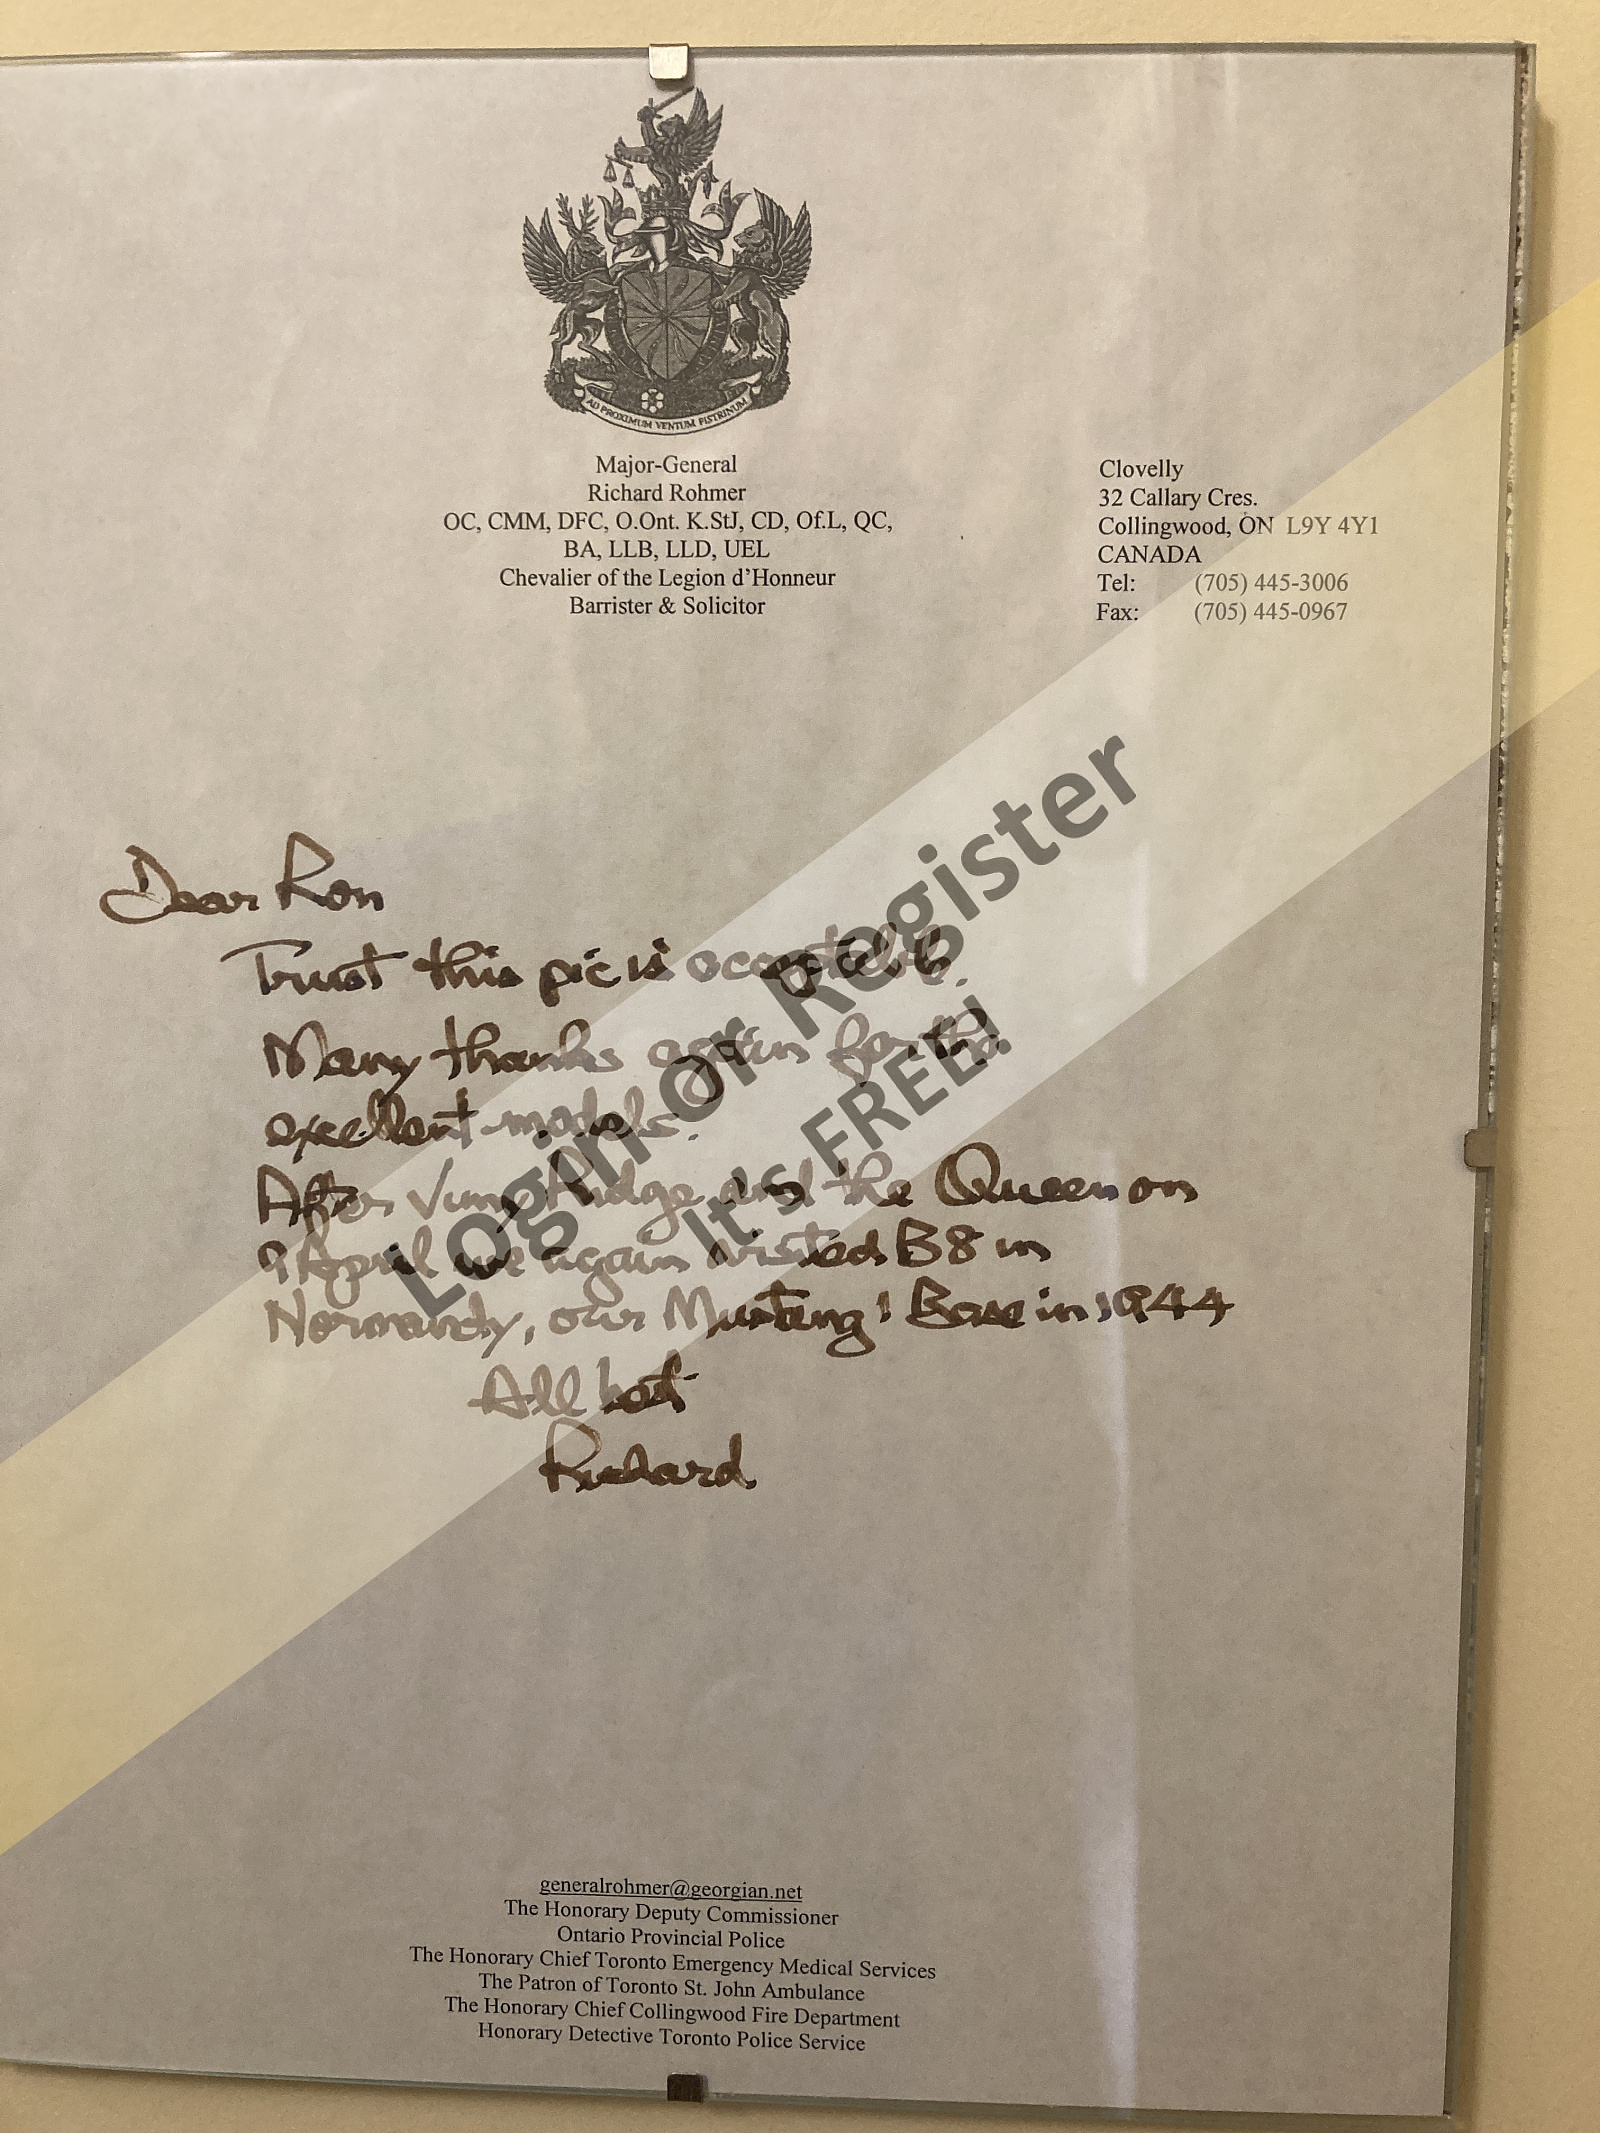 AD PROXIMUM VENTUM PISTRINUM
Major-General
Richard Rohmer
OC, CMM, DFC, O.Ont. K.StJ, CD, Of.L, QC,
BA, LLB, LLD, UEL
Chevalier of the Legion d'Honneur
Barrister & Solicitor
Clovelly
32 Callary Cres.
Collingwood, ON L9Y 4Y1
CANADA
Tel: (705) 445-3006
Fax: (705) 445-0967
Dear Ron
Trust this pic is acceptable.
Many thanks again for the
excellent models.
After Vimy Ridge and the Queen on
9 April we again visited B8 in
Normandy, our Mustang' Base in 1944
All best
Richard
Login or Register
It's FREE!
generalrohmer@georgian.net
The Honorary Deputy Commissioner
Ontario Provincial Police
The Honorary Chief Toronto Emergency Medical Services
The Patron of Toronto St. John Ambulance
The Honorary Chief Collingwood Fire Department
Honorary Detective Toronto Police Service